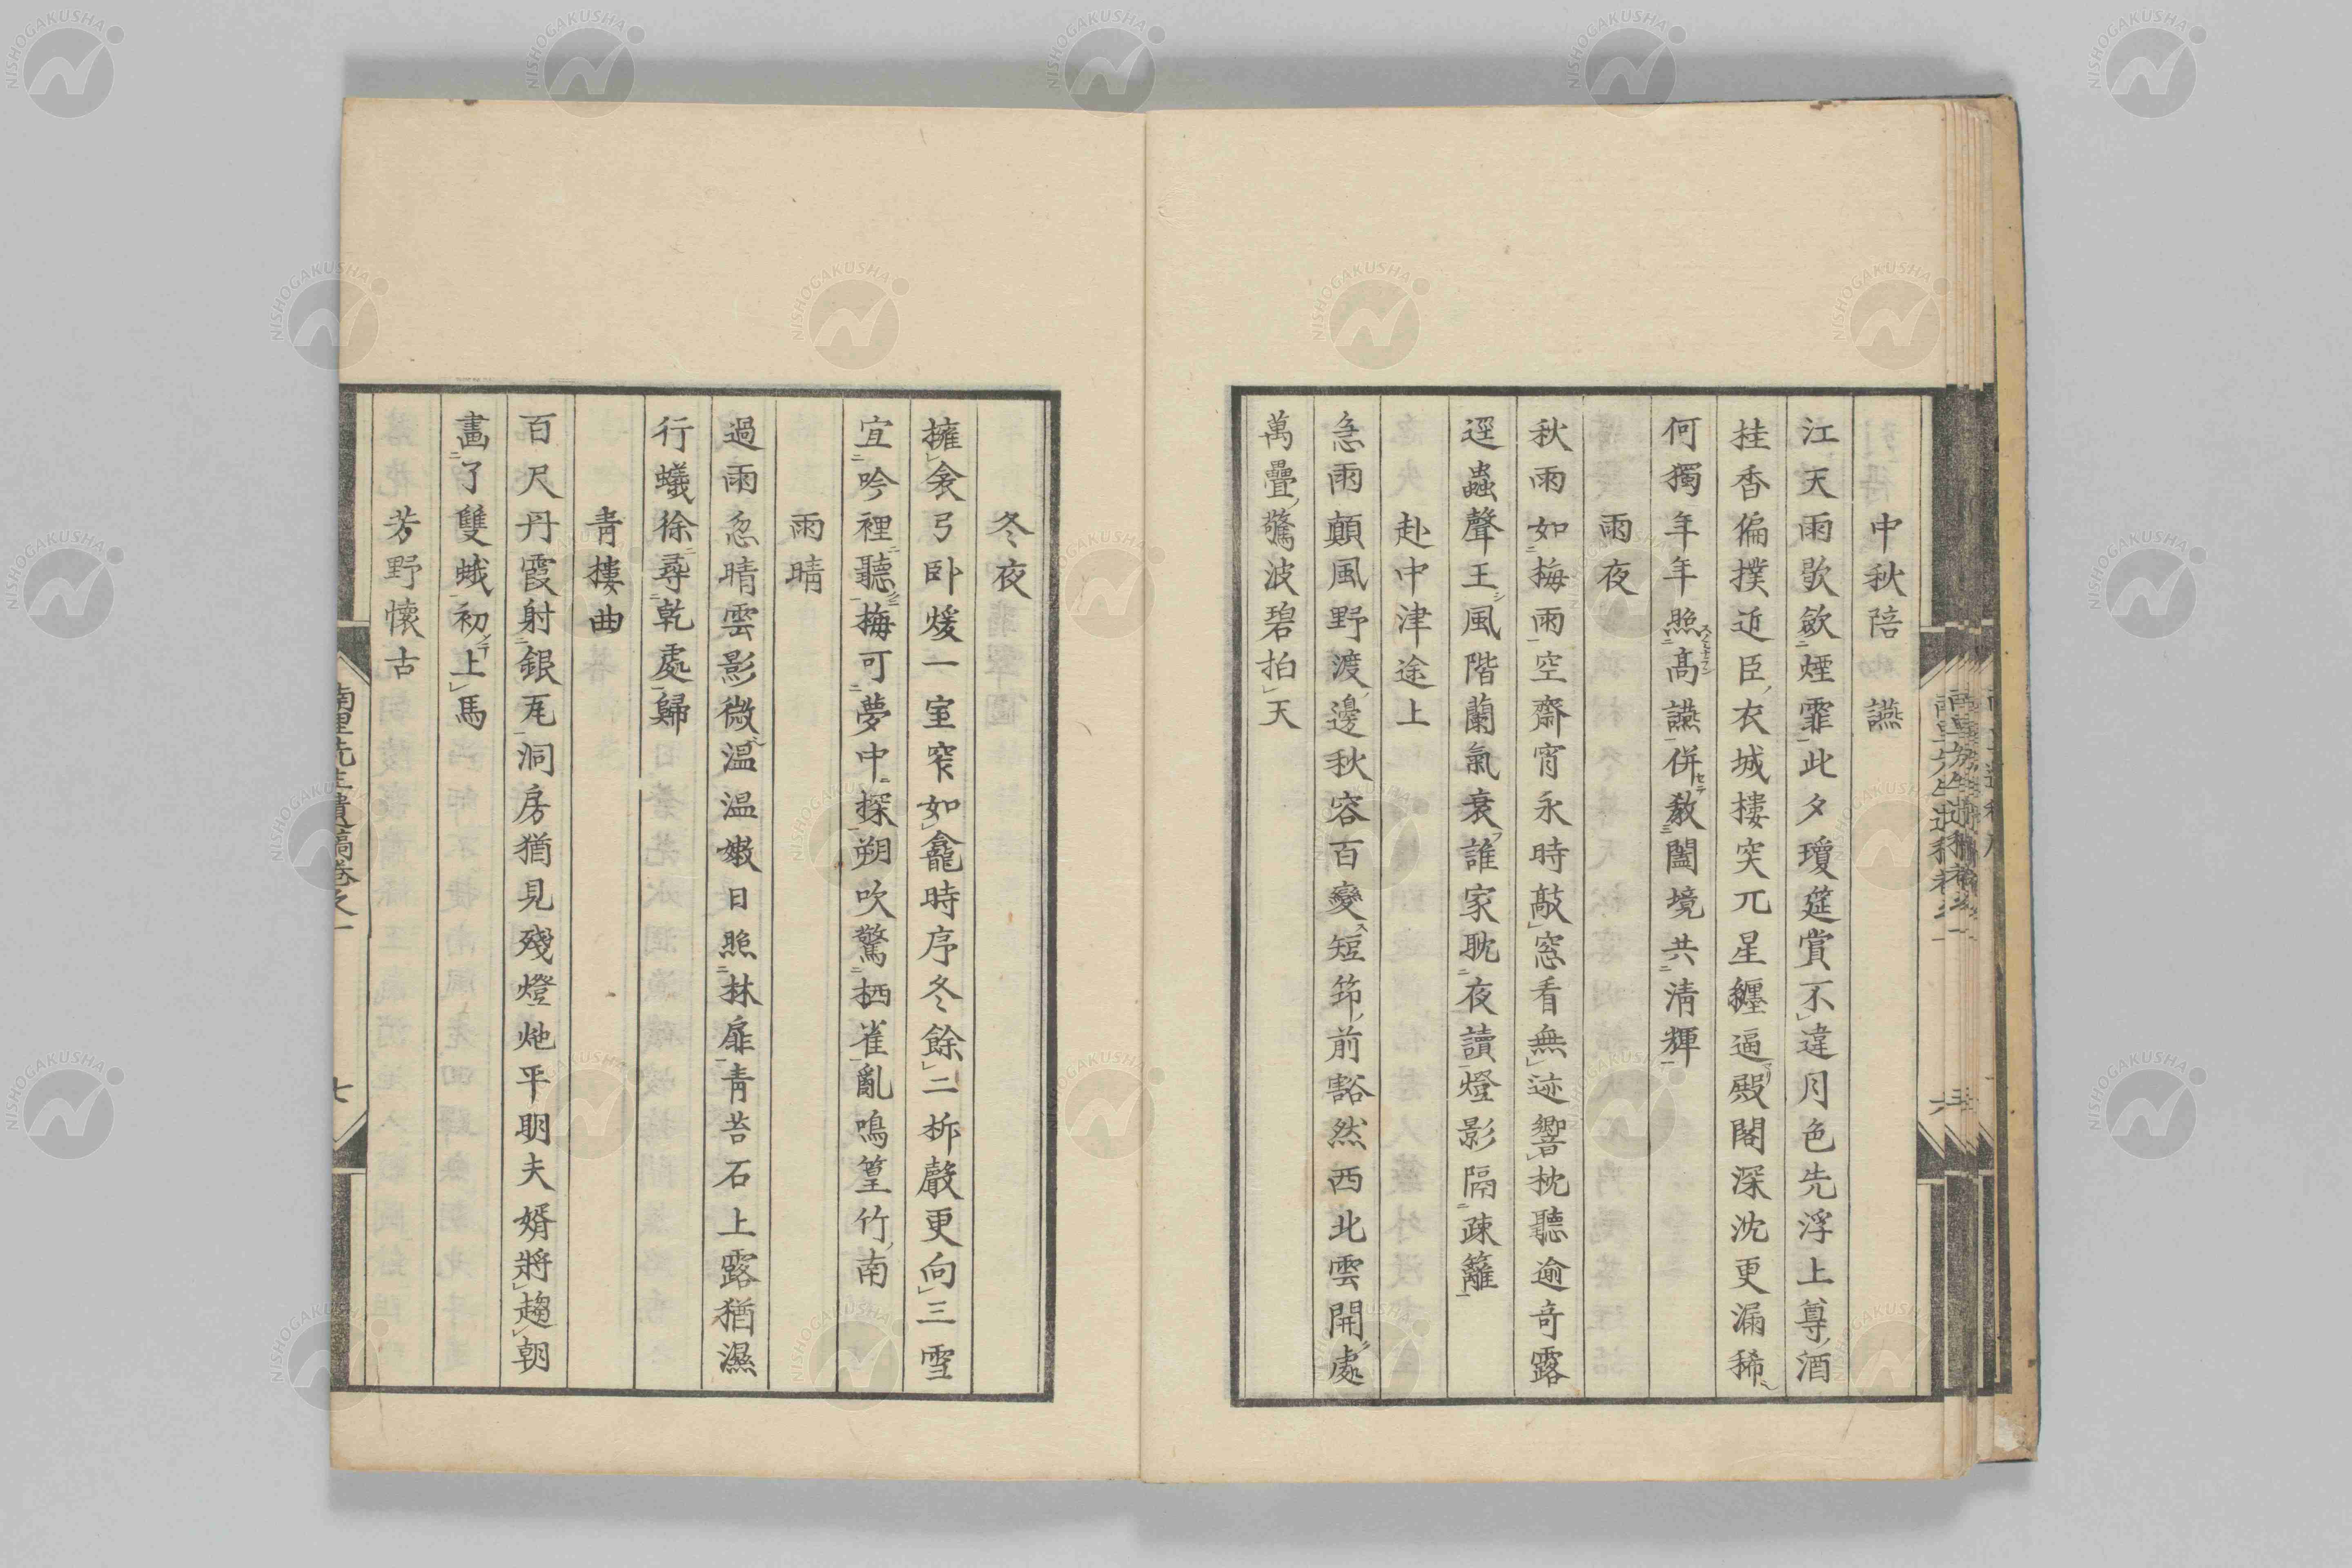 中秋陪讌
江天雨歇歛煙霏此夕瓊筵賞不違月色先浮上尊酒
挂香偏撲近臣衣城樓突兀星纏逼殿閣深沈更漏稀
何獨年年照高讌併教闔境共清輝
雨夜
秋雨如梅雨空齋宵永時敲窓看無迹響枕聽逾奇露
逕蟲聲王風階蘭氣衰誰家耽夜讀燈影隔疎籬
赴中津途上
急雨顛風野渡邊秋容百變短筇前豁然西北雲開處
萬疊驚波碧拍天
冬夜
擁衾弓卧煖一室窄如龕時序冬餘二柝聲更向三雪
宜吟裡聽梅可夢中探朔吹驚栖雀亂鳴篁竹南
雨晴
過雨忽晴雲影微温温嫩日照林扉青苔石上露猶濕
行蟻徐尋乾處歸
青樓曲
百尺丹霞射銀瓦洞房猶見殘燈灺平明夫婿將趨朝
畵了雙蛾初上馬
芳野懷古
南里先生遺稿卷之一
七
NISHOGAKUSHA